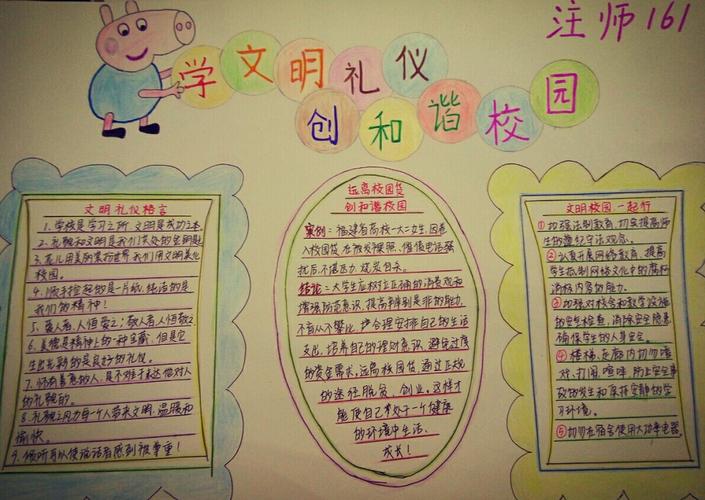 注师161
学文明礼仪
创和谐校园
文明礼仪格言
1.学校是学习之所,文明是成功之本
2.礼貌和文明是我们共处的金钥匙
3.花儿用美丽装扮世界,我们用文明美化
校园。
4.弯腰捡起的是一片纸,纯洁的是
我们的精神!
5.爱人者,人恒爱之;敬人者,人恒敬之
6.美德是精神上的一种宝藏,但是它
生出光彩的是良好的礼仪。
7.怀有善意的人,是不难于表达他对人
的礼貌的。
8.礼貌之风为每一个人带来文明、温暖和
愉快。
9.倾听可以使说话者感到被尊重!
远离校园贷
创和谐校园
案例:福建省高校一大二女生,因卷
入校园贷,在被发裸照、催债电话骚
扰后不堪压力,烧炭自杀。
结论:大学生应树立正确的消费观和
增强防范意识,提高辨别是非的能力,
不盲从不攀比,严合理安排自己的生活
支出,培养自己的理财意识,避免过度
的资金需求,远离校园贷,通过正规
的途径脱贫、创业,这样才
能使自己在一个健康
的环境中生活、
成长!
文明校园一起行
①加强法制教育,切实提高师
生的遵纪守法观念。
②认真开展网络教育,提高
学生抵制网络文化中的腐朽
消极内容的能力。
③加强对校舍和教学设施
的安全检查,消除安全隐患
确保学生的人身安全。
④楼梯、走廊内切勿嬉
戏、打闹、喧哗,防止安全事
故的发生和保持安静的学
习环境。
⑤切勿在宿舍使用大功率电器。